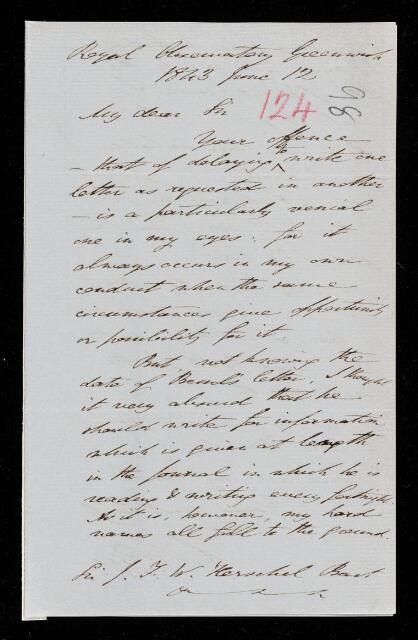 Royal Observatory Greenwich
1843 June 12
My dear Sir
124
98
Your offence
– that of delaying to write one
letter as requested in another
– is a particularly venial
one in my eyes: for it
always occurs in my own
conduct when the same
circumstances give opportunity
or possibility for it.
But, not knowing the
date of Bessel's letter, I thought
it very absurd that he
should write for information
which is given at length
in the journal in which he is
reading & writing every fortnight.
As it is, however, my hard
names all fall to the ground.
Sir J. F. W. Herschel Bart